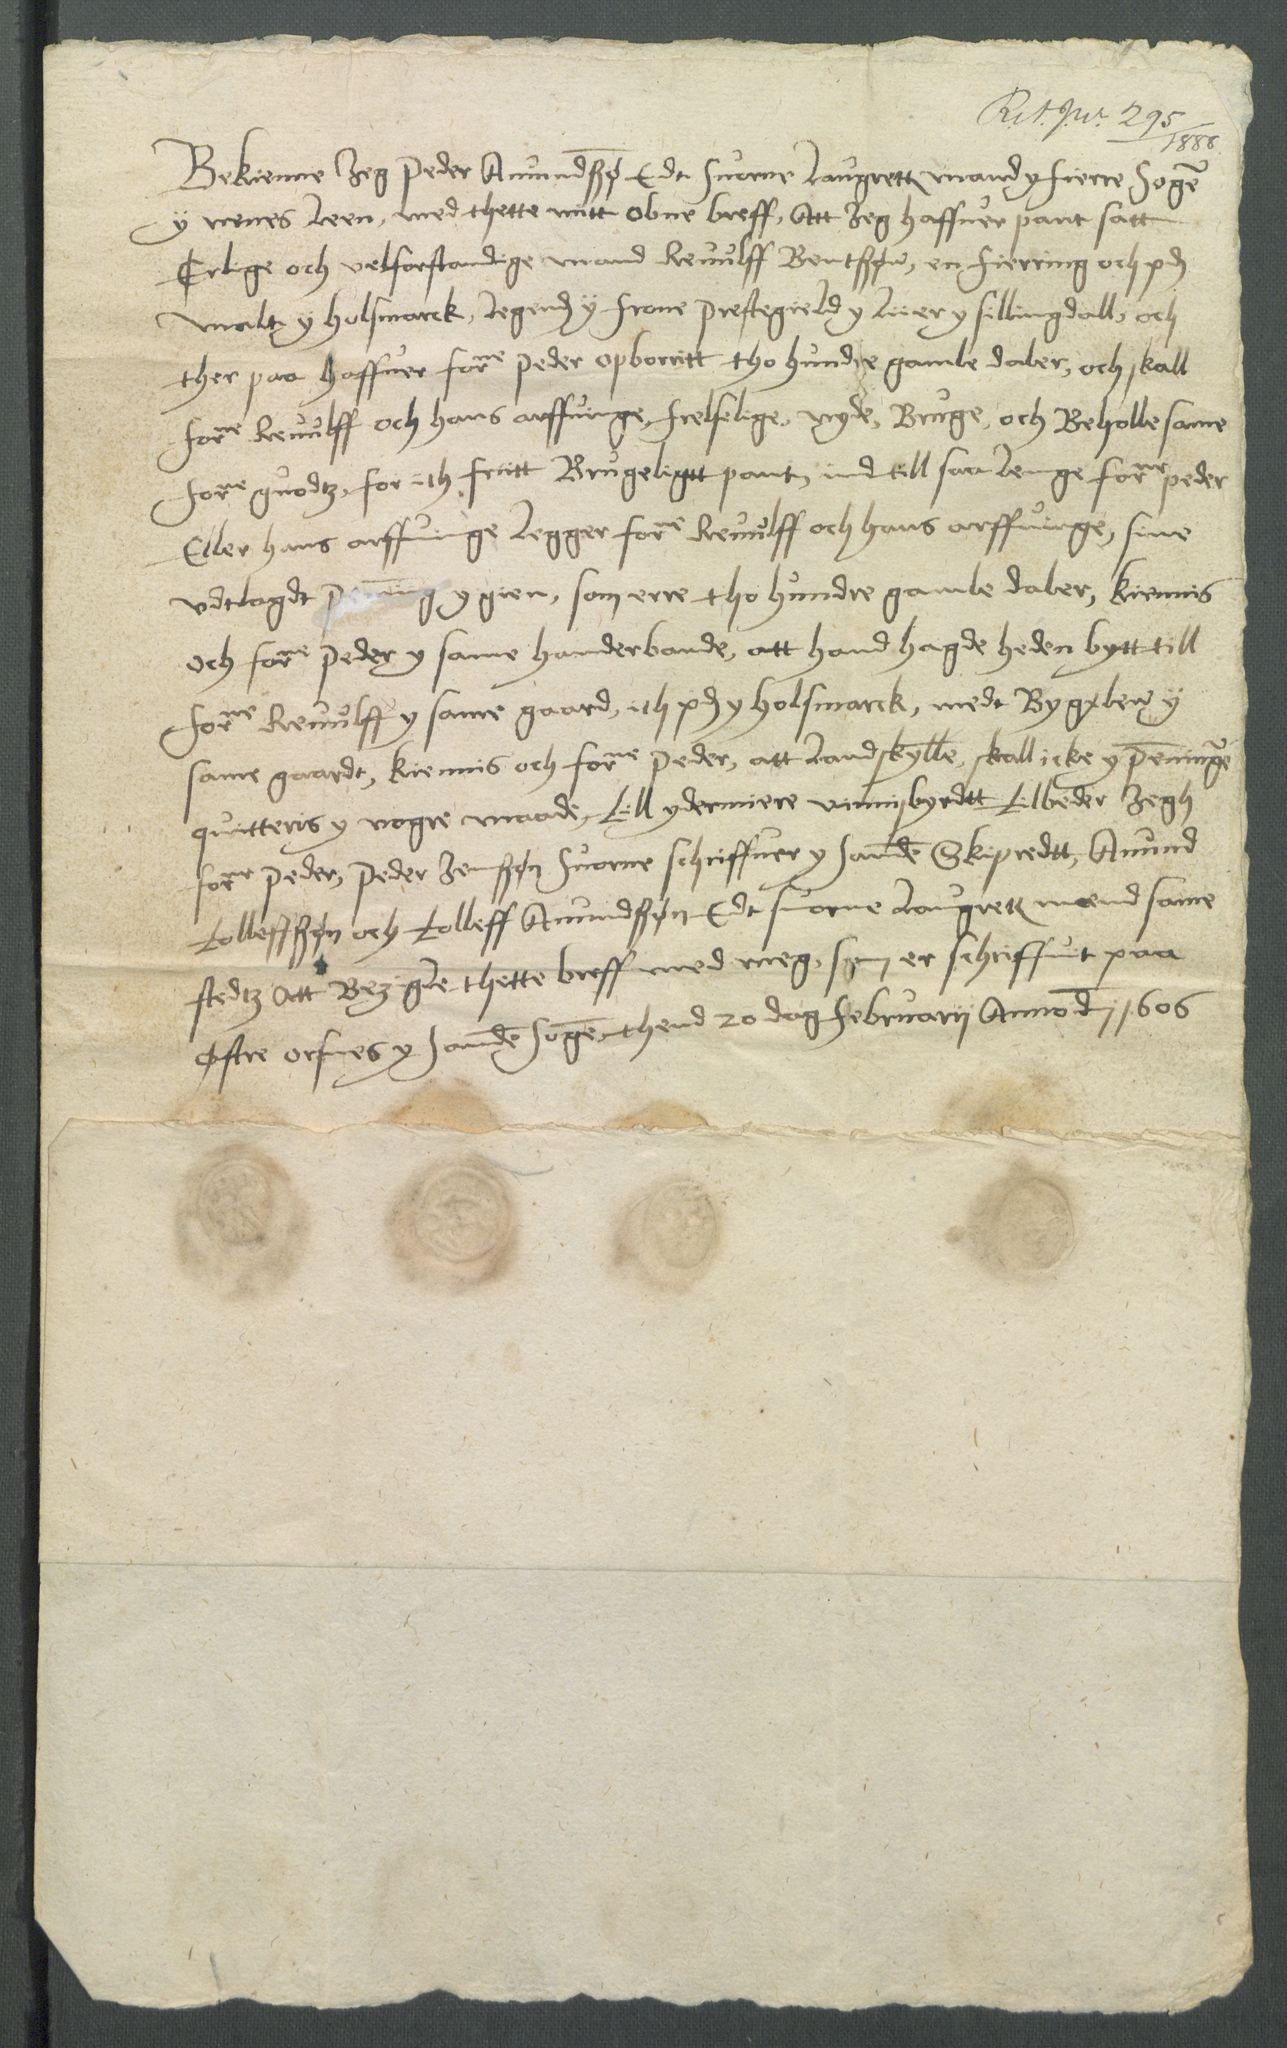 R.A. Jur. 295
1888
Bekienne Jeg Peder Amundßøn Edt Suorne Laugrettz mand y fierre Sogē
ÿ nenes Leen, med thette mitt obne breff, Att Jeg haffuer pant satt
Erlige och velforstandige mand Reuulff Bentßøn, en fierring och pd
maltz y holsmarck, Legend ÿ frone prestegield y Liier y sillingdall, och
ther paa haffuer forne Peder opborritt tho hundre gamle daler, och skall
forne Reuulff och hans arffuinge, frelselige, nyde, Bruge, och Beholle same
forne guodtz, for ith friitt Brugeligtt pant, ind till saa Lenge forne peder
Eller hans arffuinge Legger forne Reuulff och hans arffuinge, sine
vdtlagdt penning y gien, som erre tho hundre gamle daler, kiennis
och forne Peder y same handerbande, att hand hagde heden bytt till
forne Reuulff y same gaard, ith pd y holsmarck, medt Bygxlenn ÿ
same gaardt, kiennis och forne Peder, att Landskylle, skall icke y penningē
quitteris y nogre maade, Till ydermiere vinnisbyrdtt tilbeder Jegh
forne Peder, Peder Jenßøn Suorne schriffuer y Sande Skipredtt, Amund
Tolleffßøn och Tolleff Amundßøn Edt suorne Laugrettz mend same
stedtz Att Bezegle thette breff med meg, som er schriffuit paa
Østre orsnes y Sande Sogen, thend 20 dag Februarij Anno dj 1606